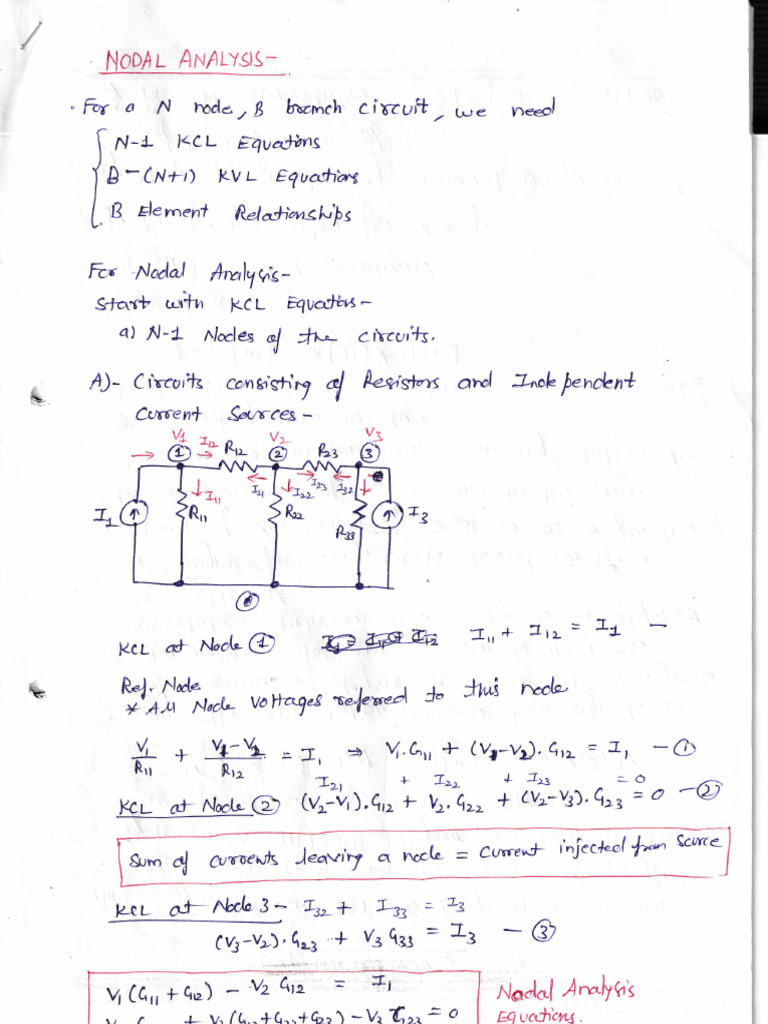 NODAL ANALYSIS-
. For a N node, B branch circuit, we need
N-1 KCL Equations
B-(N+1) KVL Equations
B Element Relationships
For Nodal Analysis-
Start with KCL Equations-
a) N-1 Nodes of the circuits.
A)- Circuits consisting of Resistors and Independent
Current Sources-
V1 V2 V3
1 I12 R12 2 R23 3
I11 I21 I22 I23 I32
I1 R11 R22 R33 I3
0
KCL at Node 1 I11 + I12 = I1 —
Ref. Node
* All Node voltages referred to this node
V1/R11 + V1-V2/R12 = I1 ⇒ V1.G11 + (V1-V2).G12 = I1 — 1
I21 + I22 + I23 = 0
KCL at Node 2 (V2-V1).G12 + V2.G22 + (V2-V3).G23 = 0 — 2
Sum of currents leaving a node = Current injected from source
KCL at Node 3 - I32 + I33 = I3
(V3-V2).G23 + V3 G33 = I3 — 3
V1(G11+G12) - V2 G12 = I1
Nodal Analysis
+ V2(G12+G22+G23) - V3 G23 = 0
Equations.